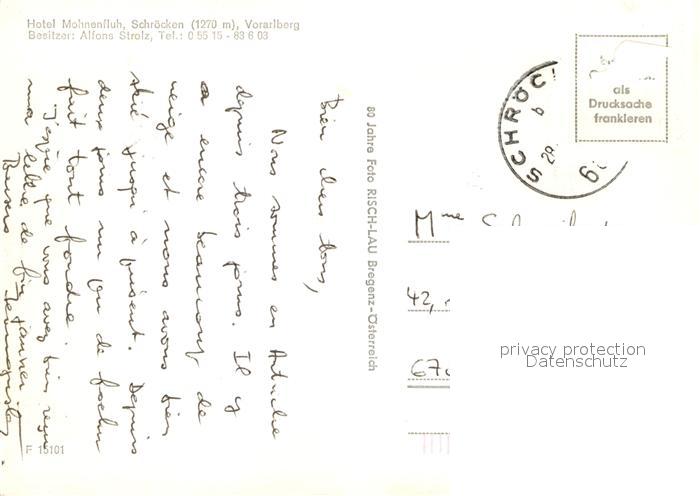 Hotel Mohnenfluh, Schröcken (1270 m), Vorarlberg
Besitzer: Alfons Strolz, Tel.: 0 55 15 - 83 6 03
als
Drucksache
frankieren
SCHRÖC
29.
80 Jahre Foto RISCH-LAU Bregenz-Österreich
Bien chers tous,
Nous sommes en Autriche
depuis trois jours. Il y
a encore beaucoup de
neige et nous avons bien
skié jusqu'à présent. Depuis
deux jours un peu de foehn
fait tout fondre.
J'espère que vous avez bien reçu
ma lettre de fin janvier.
Baisers
Mme
42,
67
privacy protection
Datenschutz
F 15101